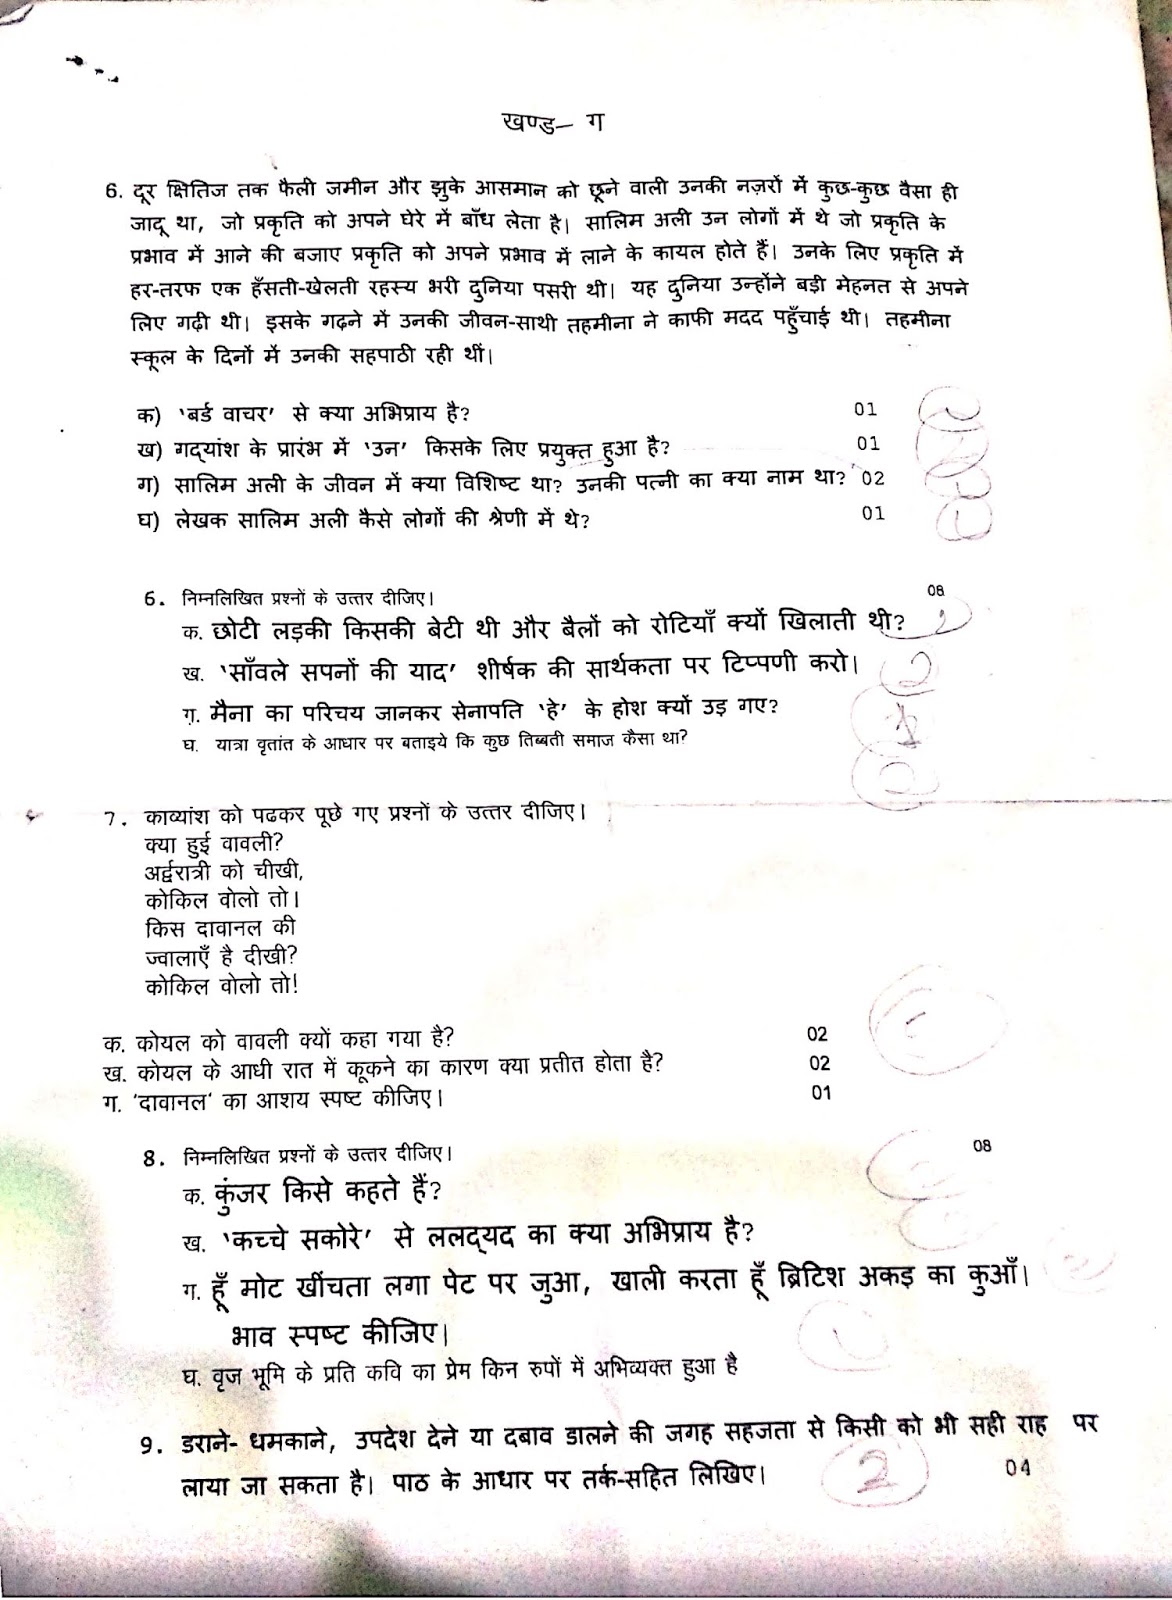 खण्ड– ग
6. दूर क्षितिज तक फैली जमीन और झुके आसमान को छूने वाली उनकी नज़रों में कुछ-कुछ वैसा ही
जादू था, जो प्रकृति को अपने घेरे में बाँध लेता है। सालिम अली उन लोगों में थे जो प्रकृति के
प्रभाव में आने की बजाए प्रकृति को अपने प्रभाव में लाने के कायल होते हैं। उनके लिए प्रकृति में
हर-तरफ एक हँसती-खेलती रहस्य भरी दुनिया पसरी थी। यह दुनिया उन्होंने बड़ी मेहनत से अपने
लिए गढ़ी थी। इसके गढ़ने में उनकी जीवन-साथी तहमीना ने काफी मदद पहुँचाई थी। तहमीना
स्कूल के दिनों में उनकी सहपाठी रही थीं।
क) 'बर्ड वाचर' से क्या अभिप्राय है? 01
ख) गद्यांश के प्रारंभ में 'उन' किसके लिए प्रयुक्त हुआ है? 01
ग) सालिम अली के जीवन में क्या विशिष्ट था? उनकी पत्नी का क्या नाम था? 02
घ) लेखक सालिम अली कैसे लोगों की श्रेणी में थे? 01
6. निम्नलिखित प्रश्नों के उत्तर दीजिए। 08
क. छोटी लड़की किसकी बेटी थी और बैलों को रोटियाँ क्यों खिलाती थी?
ख. 'साँवले सपनों की याद' शीर्षक की सार्थकता पर टिप्पणी करो। 2
ग. मैना का परिचय जानकर सेनापति 'हे' के होश क्यों उड़ गए?
घ. यात्रा वृतांत के आधार पर बताइये कि कुछ तिब्बती समाज कैसा था?
7. काव्यांश को पढकर पूछे गए प्रश्नों के उत्तर दीजिए।
क्या हुई वावली?
अर्द्वरात्री को चीखी,
कोकिल वोलो तो।
किस दावानल की
ज्वालाएँ है दीखी?
कोकिल वोलो तो!
क. कोयल को वावली क्यों कहा गया है? 02
ख. कोयल के आधी रात में कूकने का कारण क्या प्रतीत होता है? 02
ग. 'दावानल' का आशय स्पष्ट कीजिए। 01
8. निम्नलिखित प्रश्नों के उत्तर दीजिए। 08
क. कुंजर किसे कहते हैं?
ख. 'कच्चे सकोरे' से ललद्यद का क्या अभिप्राय है?
ग. हूँ मोट खींचता लगा पेट पर जुआ, खाली करता हूँ ब्रिटिश अकड़ का कुआँ।
भाव स्पष्ट कीजिए। 1
घ. वृज भूमि के प्रति कवि का प्रेम किन रुपों में अभिव्यक्त हुआ है
9. डराने- धमकाने, उपदेश देने या दबाव डालने की जगह सहजता से किसी को भी सही राह पर
लाया जा सकता है। पाठ के आधार पर तर्क-सहित लिखिए। 2 04